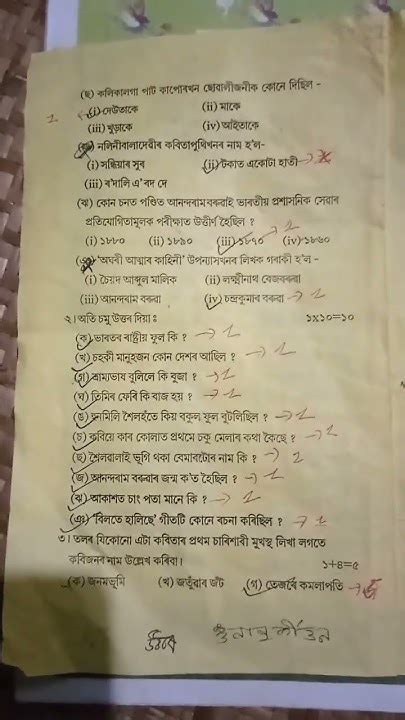 (ছ) কলিকালগা পাট কাপোৰখন ছোৱালীজনীক কোনে দিছিল -
1 (i) দেউতাকে (ii) মাকে
(iii) খুড়াকে (iv) আইতাকে
নলিনীবালাদেৱীৰ কবিতাপুথিখনৰ নাম হ'ল-
(i) সন্ধিয়াৰ সুৰ (ii) টকাত একোটা হাতী
(iii) ৰ'দালি এ' ৰদ দে
(ঝ) কোন চনত পণ্ডিত আনন্দৰামবৰুৱাই ভাৰতীয় প্ৰশাসনিক সেৱাৰ
প্ৰতিযোগিতামূলক পৰীক্ষাত উত্তীৰ্ণ হৈছিল ? 1
(i) ১৮৮০ (ii) ১৮৯০ (iii) ১৮৭০ (iv) ১৮৬০
(ঞ) 'অঘৰী আত্মাৰ কাহিনী' উপন্যাসখনৰ লিখক গৰাকী হ'ল -
(i) চৈয়দ আব্দুল মালিক (ii) লক্ষ্মীনাথ বেজবৰুৱা
(iii) আনন্দৰাম বৰুৱা (iv) চন্দ্ৰকুমাৰ বৰুৱা → 1
২। অতি চমু উত্তৰ দিয়া ঃ ১x১০=১০
(ক) ভাৰতৰ ৰাষ্ট্ৰীয় ফুল কি ? → 1
(খ) চহকী মানুহজন কোন দেশৰ আছিল ? → 1
(গ) শ্ৰাম্যভাষ বুলিলে কি বুজা ? → 1
(ঘ) তিমিৰ ফেৰি কি বাজ হয় ? → 1
(ঙ) ঘনমিলি শৈলইতে কিয় বকুল ফুল বুটলিছিল ? → 1
(চ) কবিয়ে কাৰ কোলাত প্ৰথমে চকু মেলাৰ কথা কৈছে ? → 1
(ছ) শৈলৱালাই ভূগি থকা বেমাৰটোৰ নাম কি ? → 1
(জ) আনন্দৰাম বৰুৱাৰ জন্ম ক'ত হৈছিল ? → 1
(ঝ) আকাশত চাং পতা মানে কি ? → 1
(ঞ) 'বিলতে হালিছে' গীতটি কোনে ৰচনা কৰিছিল ? → 1
৩। তলৰ যিকোনো এটা কবিতাৰ প্ৰথম চাৰিশাৰী মুখস্থ লিখা লগতে
কবিজনৰ নাম উল্লেখ কৰিবা। ১+৪=৫
(ক) জনমভূমি (খ) জতুঁৱাৰ জঁট (গ) তেজৰ্বে কমলাপতি → 5